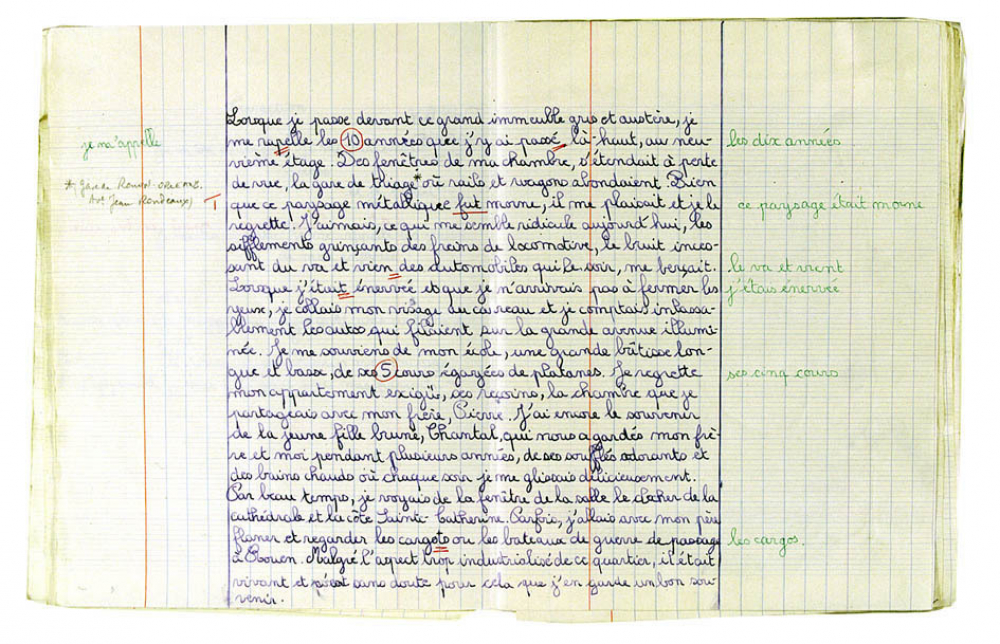 Lorsque je passe devant ce grand immeuble gris et austère, je
me rapelle les 10 années que j'y ai passé là-haut, au neu-
vième étage. Des fenêtres de ma chambre, s'étendait à perte
de vue, la gare de triage* où rails et wagons abondaient. Bien
que ce paysage métallique fut morne, il me plaisait et je le
regrette. J'aimais, ce qui me semble ridicule aujourd'hui, les
sifflements grinçants des freins de locomotive, le bruit inces-
sant du va et vien des automobiles qui le soir, me berçait.
Lorsque j'était énervée et que je n'arrivais pas à fermer les
yeux, je collais mon visage au carreau et je comptais inlassa-
blement les autos qui filaient sur la grande avenue illumi-
née. Je me souviens de mon école, une grande bâtisse lon-
gue et basse, de ses 5 cours égayées de platanes. Je regrette
mon appartement exigü, ses recoins, la chambre que je
partageais avec mon frère, Pierre. J'ai encore le souvenir
de la jeune fille brune, Chantal, qui nous a gardés mon frè-
re et moi pendant plusieurs années, de ses soufflés odorants et
des bains chauds où chaque soir je me glissais délicieusement.
Par beau temps, je voyais de la fenêtre de la salle le clocher de la
cathédrale et la côte Sainte Catherine. Parfois, j'allais avec mon père
flâner et regarder les cargots ou les bateaux de guerre de passage
à Rouen. Malgré l'aspect trop industrialisé de ce quartier, il était
vivant et c'est sans doute pour cela que j'en garde un bon sou-
venir.
je m'appelle
* gare Rouen-
Av Jean Rondeaux)
T
les dix années
ce paysage était morne
le va et vient
j'étais énervée
ses cinq cours
les cargos.